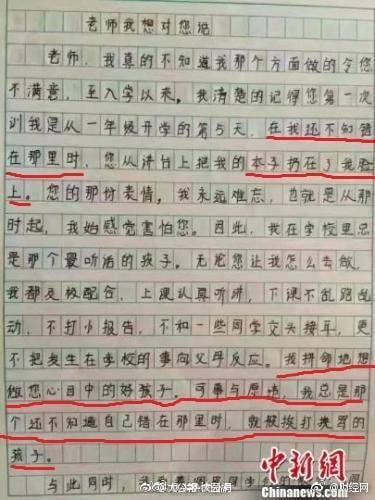 老师我想对您说
老师，我真的不知道我那个方面做的令您
不满意，至入学以来。我清楚的记得您第一次
训我是从一年级开学的第5天，在我还不知错
在那里时，您从讲台上把我的本子扔在了我脸
上。您的那份表情。我永远难忘，也就是从那
时起，我始感觉害怕您。因此，我在学校里总
是那个最听话的孩子。无论您让我怎么去做，
我都及极配合，上课认真听讲，下课不乱跑乱
动，不打小报告，不和一些同学交头接耳，更
不把发生在学校的事向父母反应。我拼命地想
做您心目中的好孩子。可事与愿违，我总是那
个还不知道自己错在那里时，就被挨打挨骂的
孩子。
与此同时，
中新网
Chinanews.com
@大公报-
@财经网